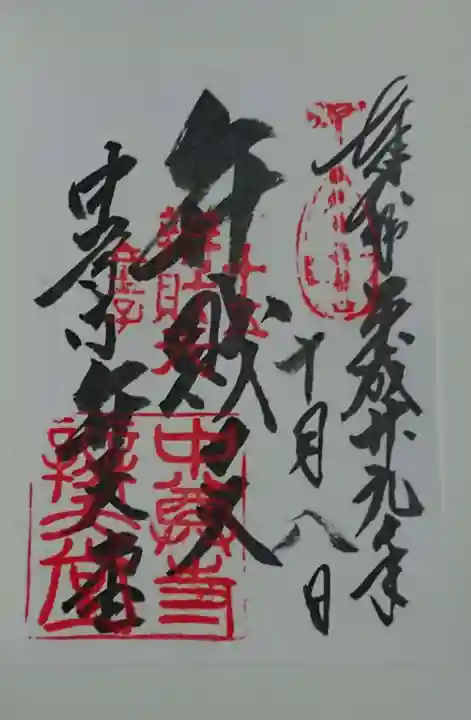 奉拝 平成廾九年
十月八日
弁財天
中尊寺 弁天堂
中尊寺
辯天堂